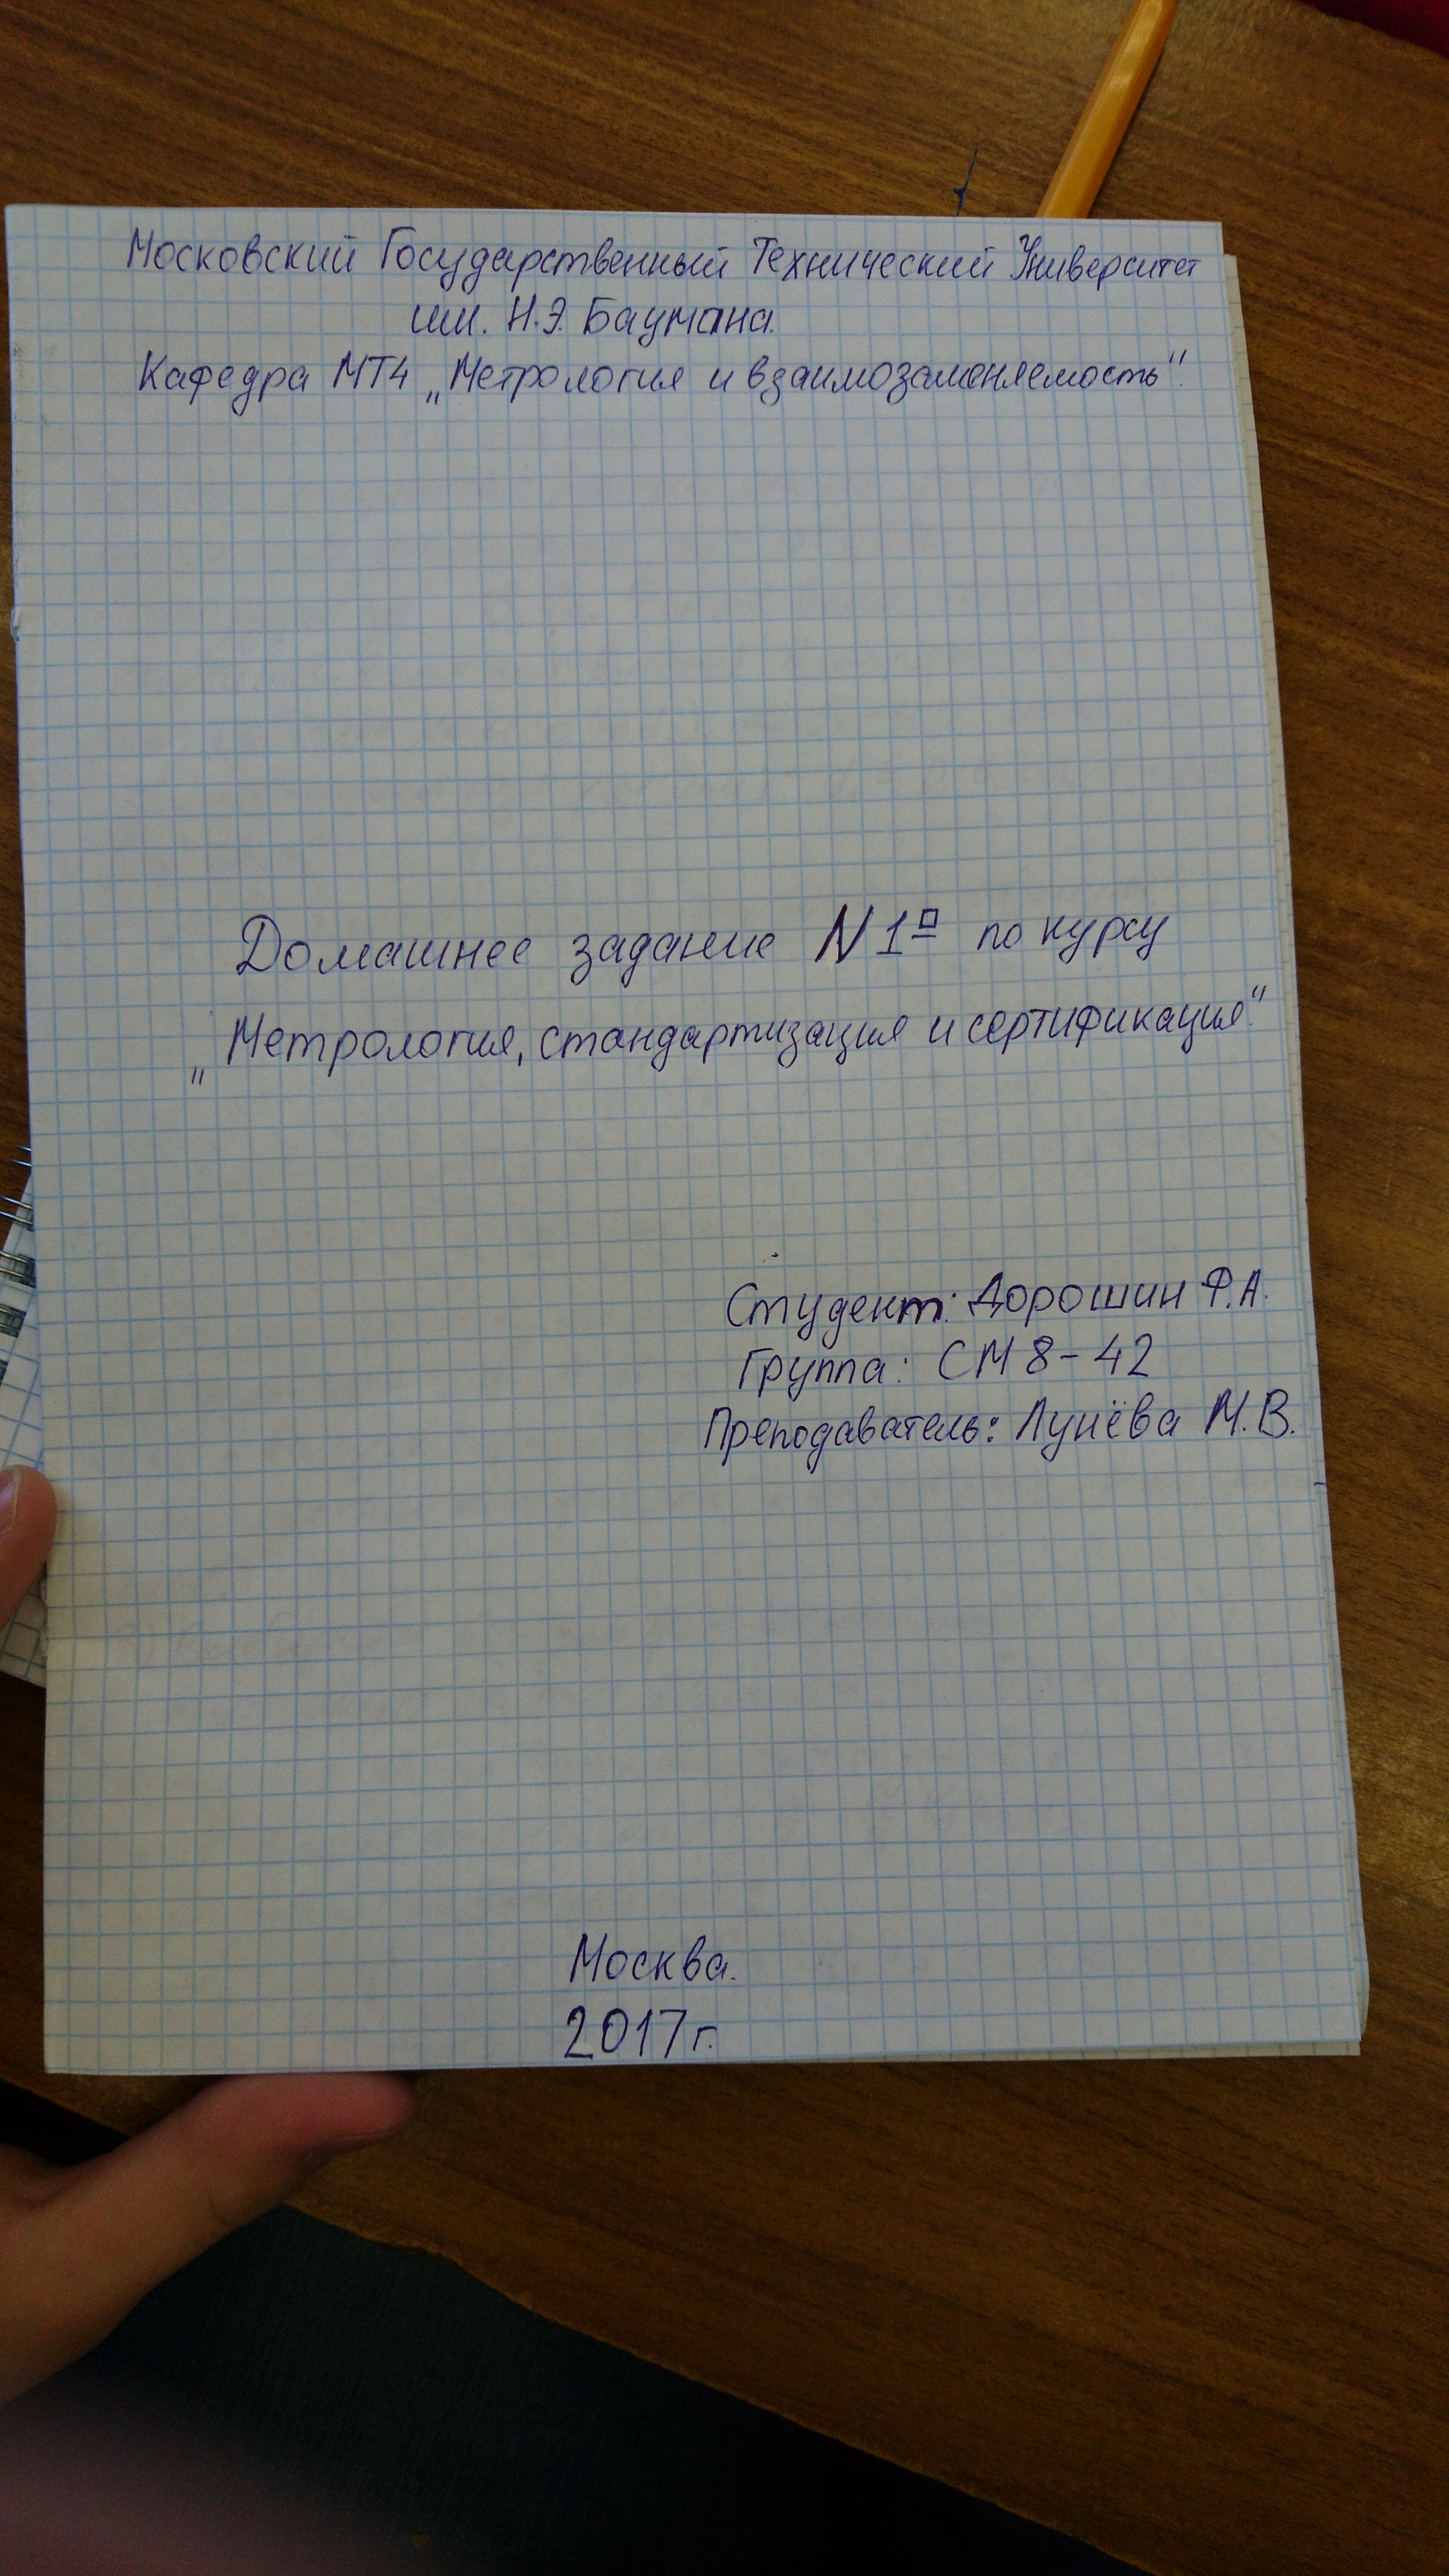 Московский Государственный Технический Университет
им. Н.Э. Баумана.
Кафедра МТ4 „Метрология и взаимозаменяемость".
Домашнее задание N1º по курсу
„Метрология, стандартизация и сертификация."
Студент: Дорошин Ф.А.
Группа: СМ8-42
Преподаватель: Лунёва М.В.
Москва.
2017г.